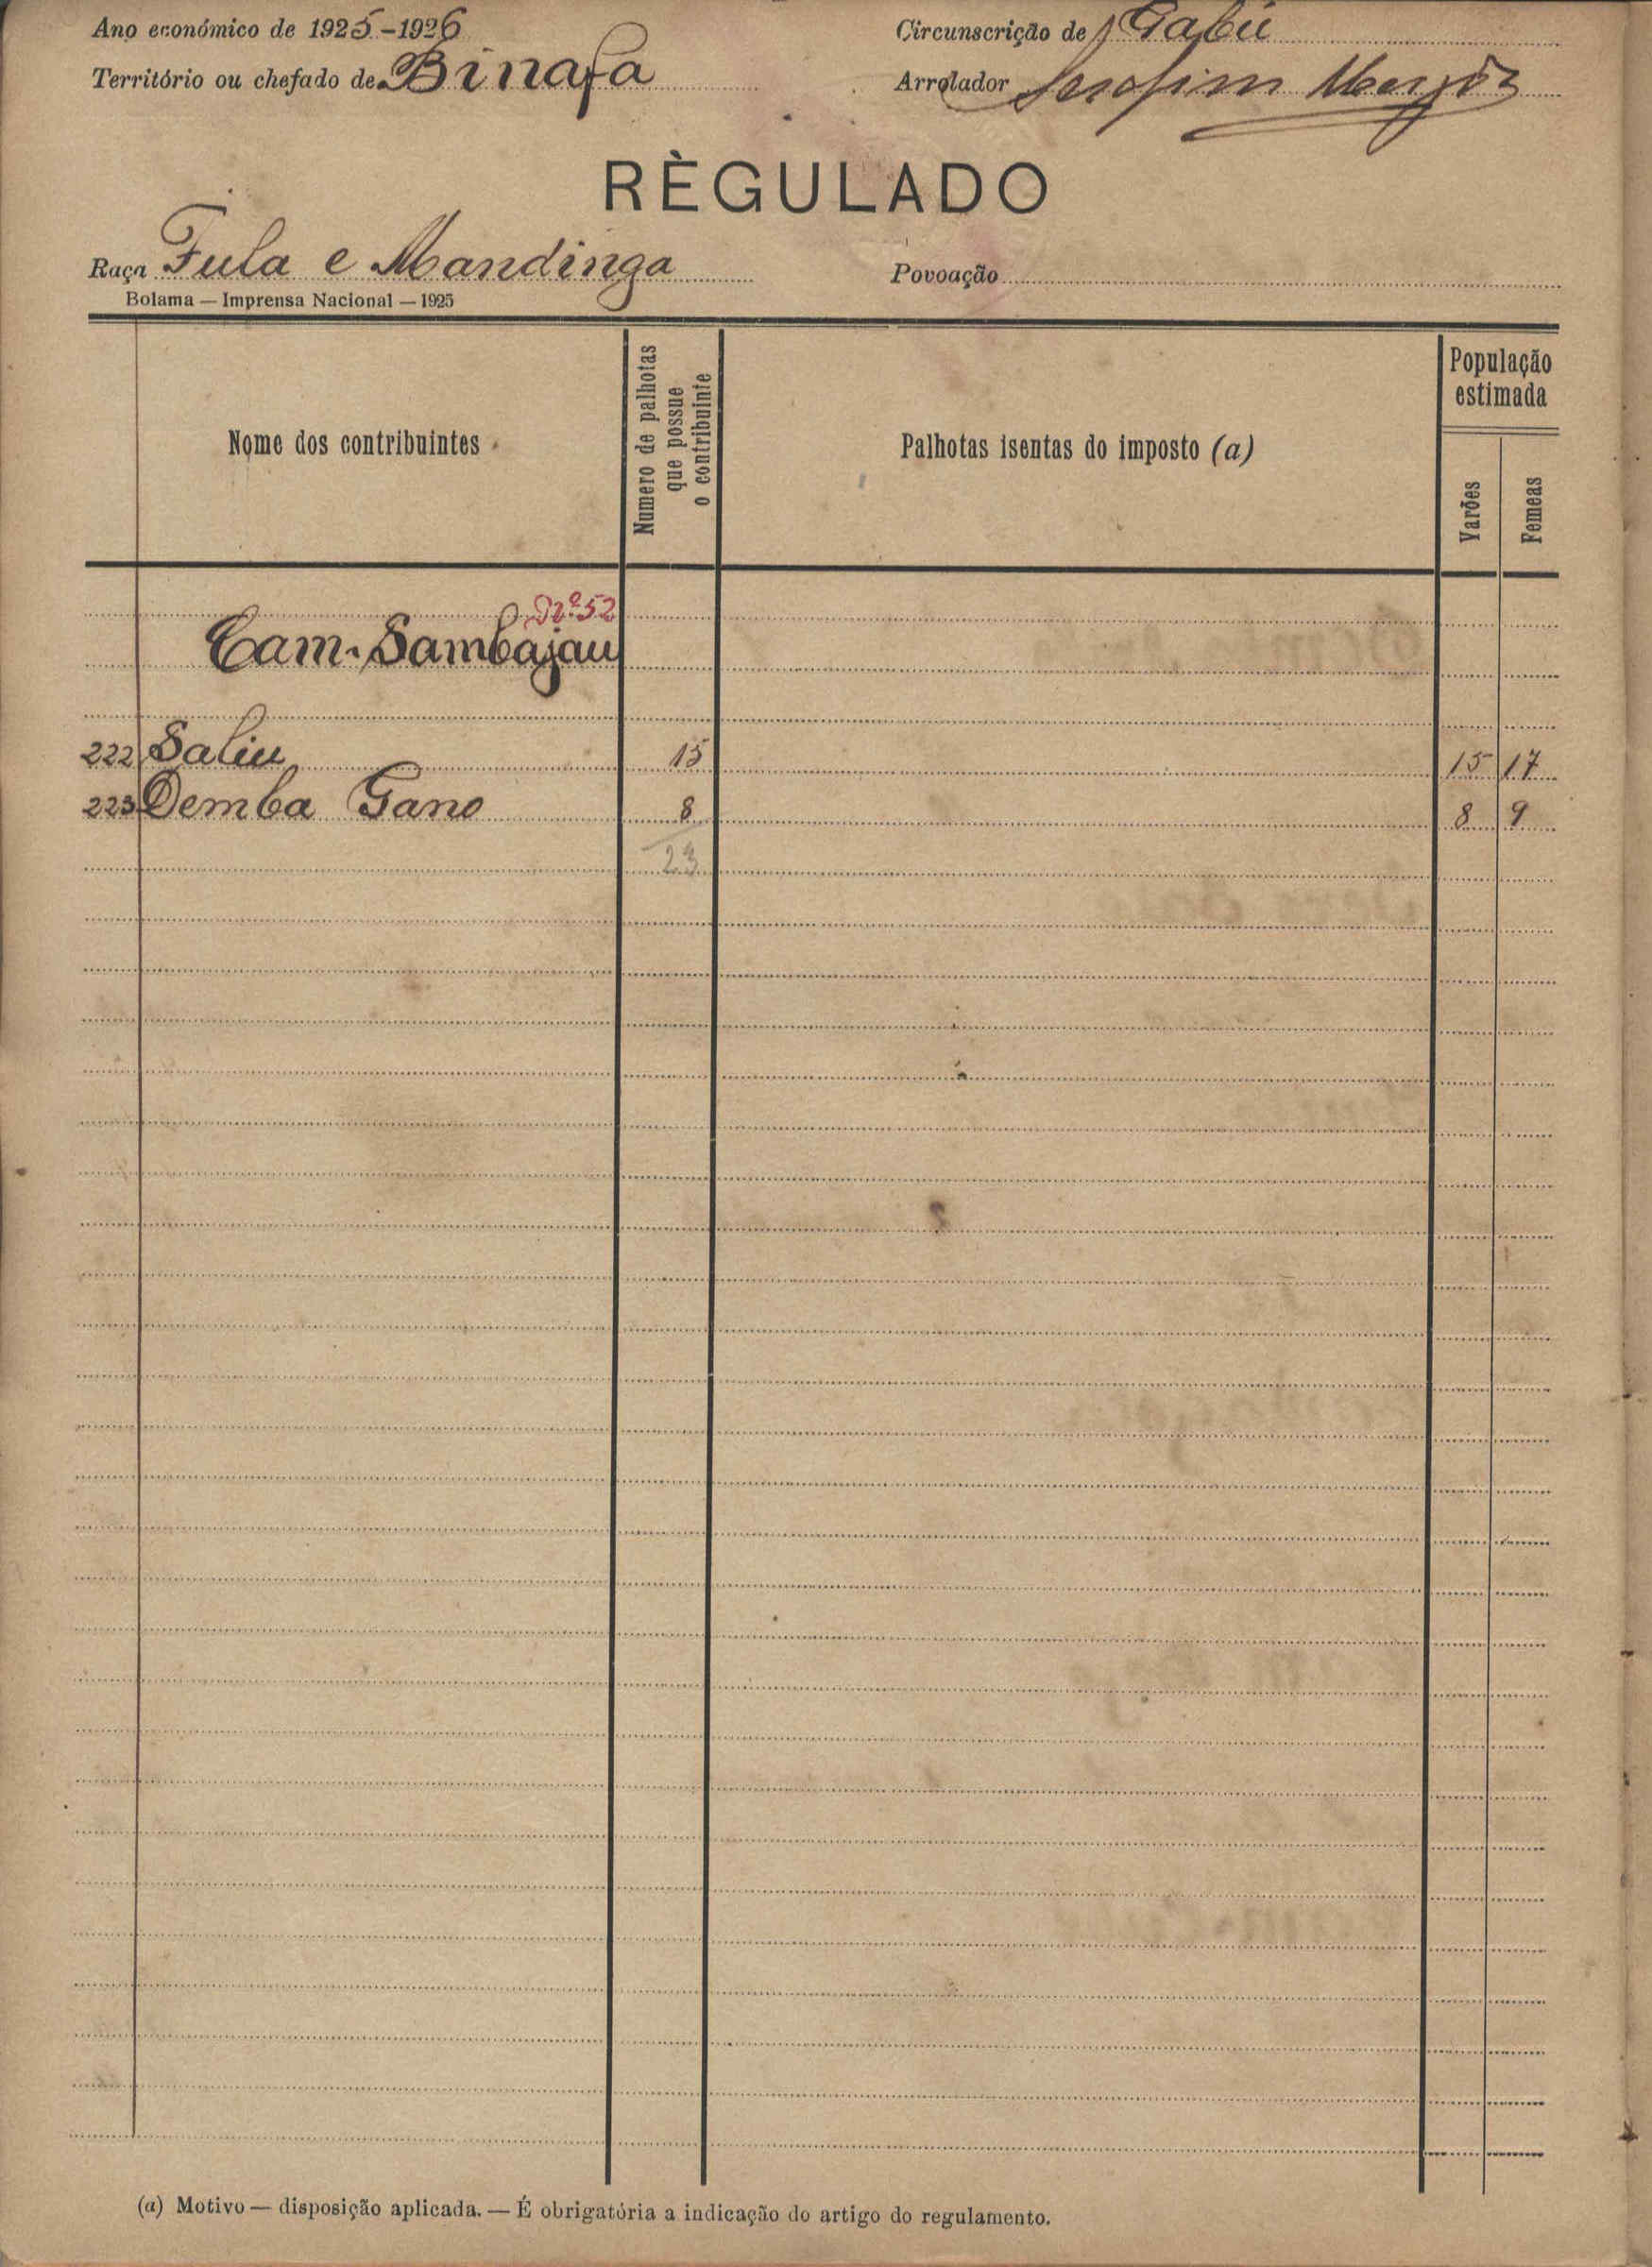 Ano económico de 1925-1926
Circunscrição de Gabú
Território ou chefado de Binafa
Arrolador Serafim
RÈGULADO
Raça Fula e Mandinga
Povoação
Bolama — Imprensa Nacional — 1925
Nome dos contribuintes
Numero de palhotas
que possue
o contribuinte
Palhotas isentas do imposto (a)
População
estimada
Varões
Femeas
Nº 52
Tam. Sambajau
222 Saliu 15 15 17
223 Demba Gano 8 8 9
23
(a) Motivo — disposição aplicada. — É obrigatória a indicação do artigo do regulamento.